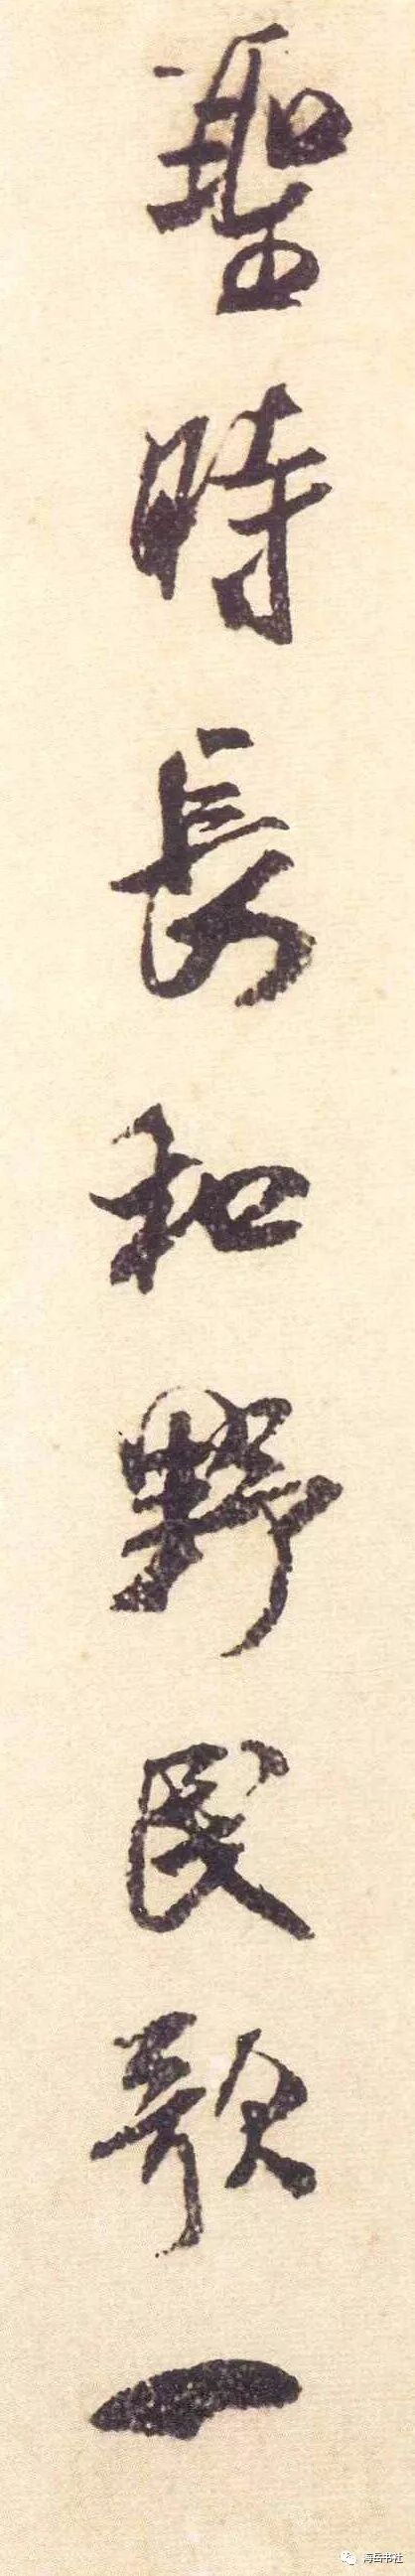 聖時長和野民歌一
海岳书社